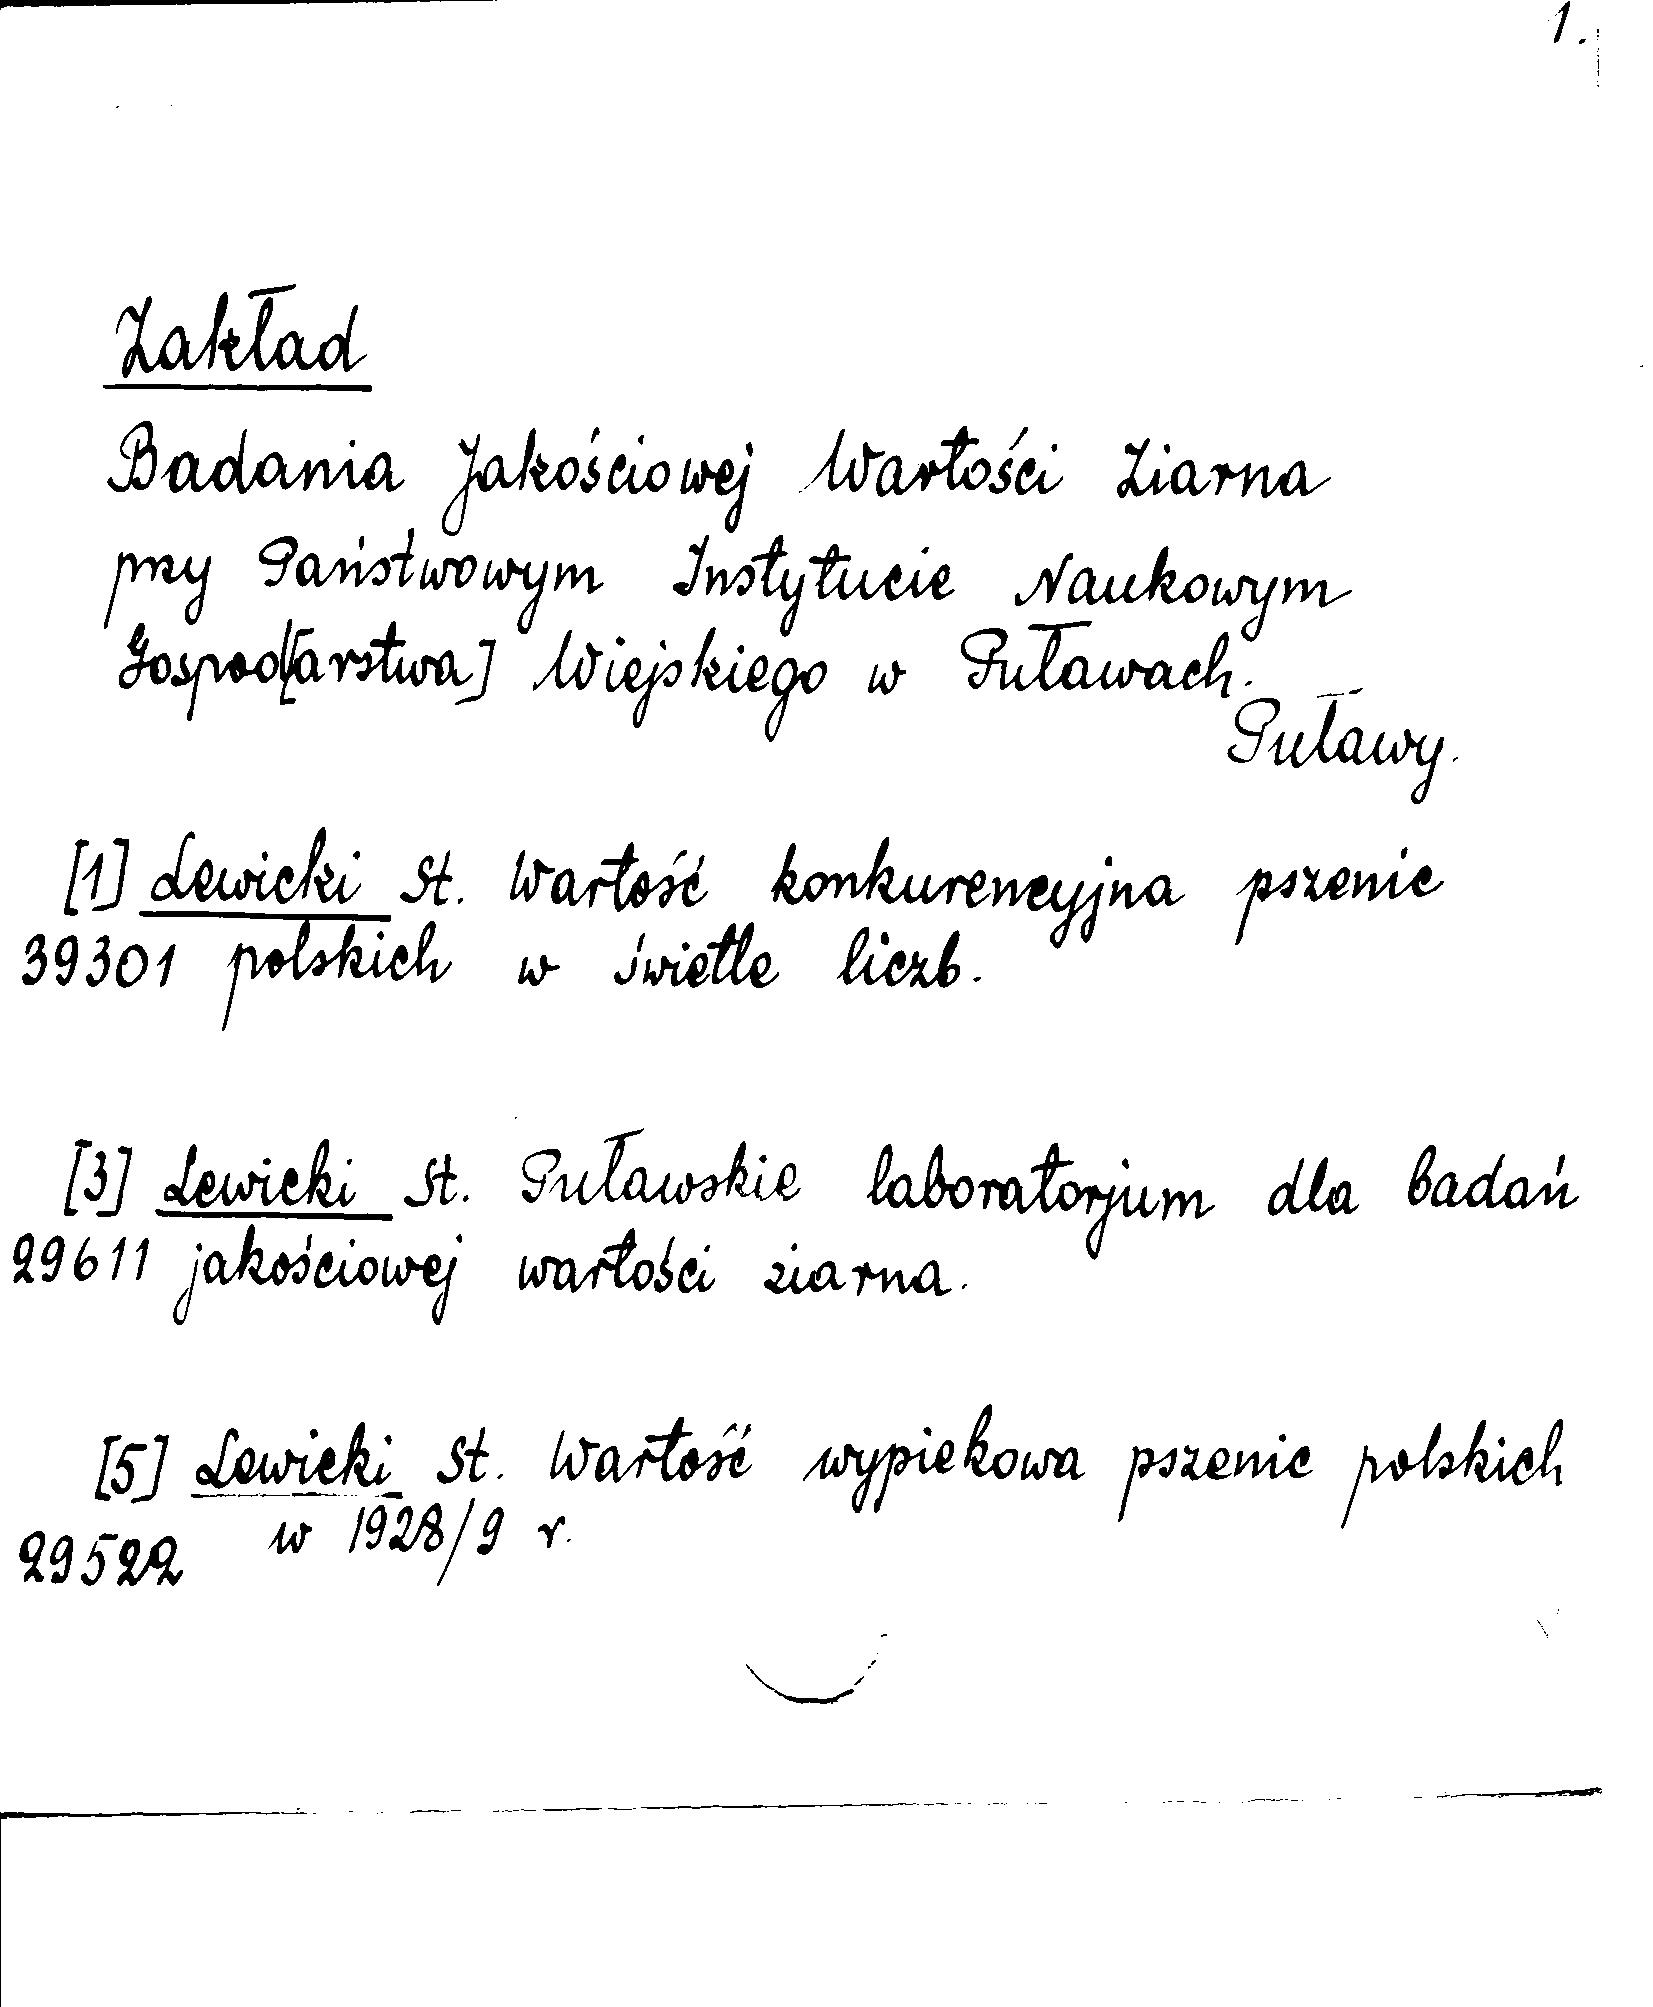 1.
Zakład
Badania Jakościowej Wartości Ziarna
przy Państwowym Instytucie Naukowym
Gospod[arstwa] Wiejskiego w Puławach.
Puławy.
[1] Lewicki St. Wartość konkurencyjna pszenic
39301 polskich w świetle liczb.
[3] Lewicki St. Puławskie laboratorjum dla badań
29611 jakościowej wartości ziarna.
[5] Lewicki St. Wartość wypiekowa pszenic polskich
29522 w 1928/9 r.